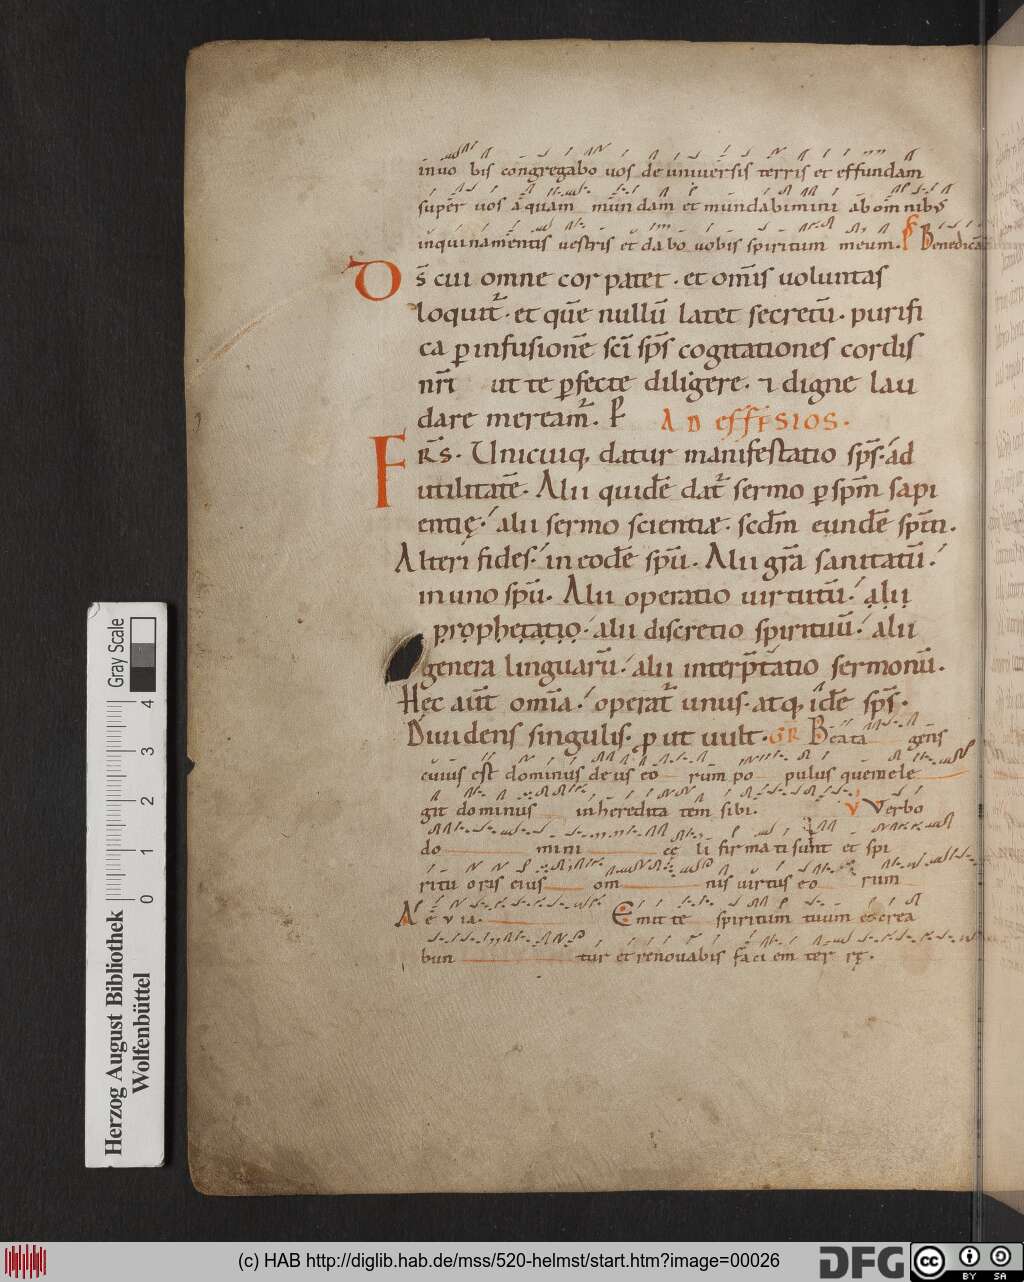 in uo bis congregabo uos de uniuersis terris et effundam
super uos aquam mundam et mundabimini ab omnibus
inquinamentis uestris et dabo uobis spiritum meum. Benedicā
Ds̄ cui omne cor patet. et om̄is uoluntas
loquit᷑. et quē nullū latet secretū. purifi
ca p̲ infusionē sc̄i sp̄s cogitationes cordis
nr̄i ut te p̲fecte diligere. ⁊ digne lau
dare meream᷑. P̲ AD EFFESIOS.
FRS̄. Unicuiq, datur manifestatio sp̄s. ad
utilitatē. Alii quidē dat᷑ sermo p̲ sp̄m sapi
entię. alii sermo scientiæ. scd̄m eundē sp̄m.
Alteri fides. in eodē sp̄u. Alii gr̄a sanitatū.
in uno sp̄u. Alii operatio uirtutū. alii
prophetatio. alii discretio spirituū. alii
genera linguarū. alii interp̄tatio sermonū.
Hec aūt om̄ia. operat᷑ unus. atq, idē sp̄s.
Diuidens singulis. p̲ ut uult. GR Beata gens
cuius est dominus deus eo rum po pulus quem ele
git dominus in heredita tem sibi. V Verbo
do mini cę li firmati sunt et spi
ritu oris eius om nis uirtus eo rum
Aeuia. Emitte spiritum tuum et crea
bun tur et renouabis faci em ter rę.
Gray Scale
4 3 2 1 0
Herzog August Bibliothek
Wolfenbüttel
(c) HAB http://diglib.hab.de/mss/520-helmst/start.htm?image=00026
DFG
cc BY SA